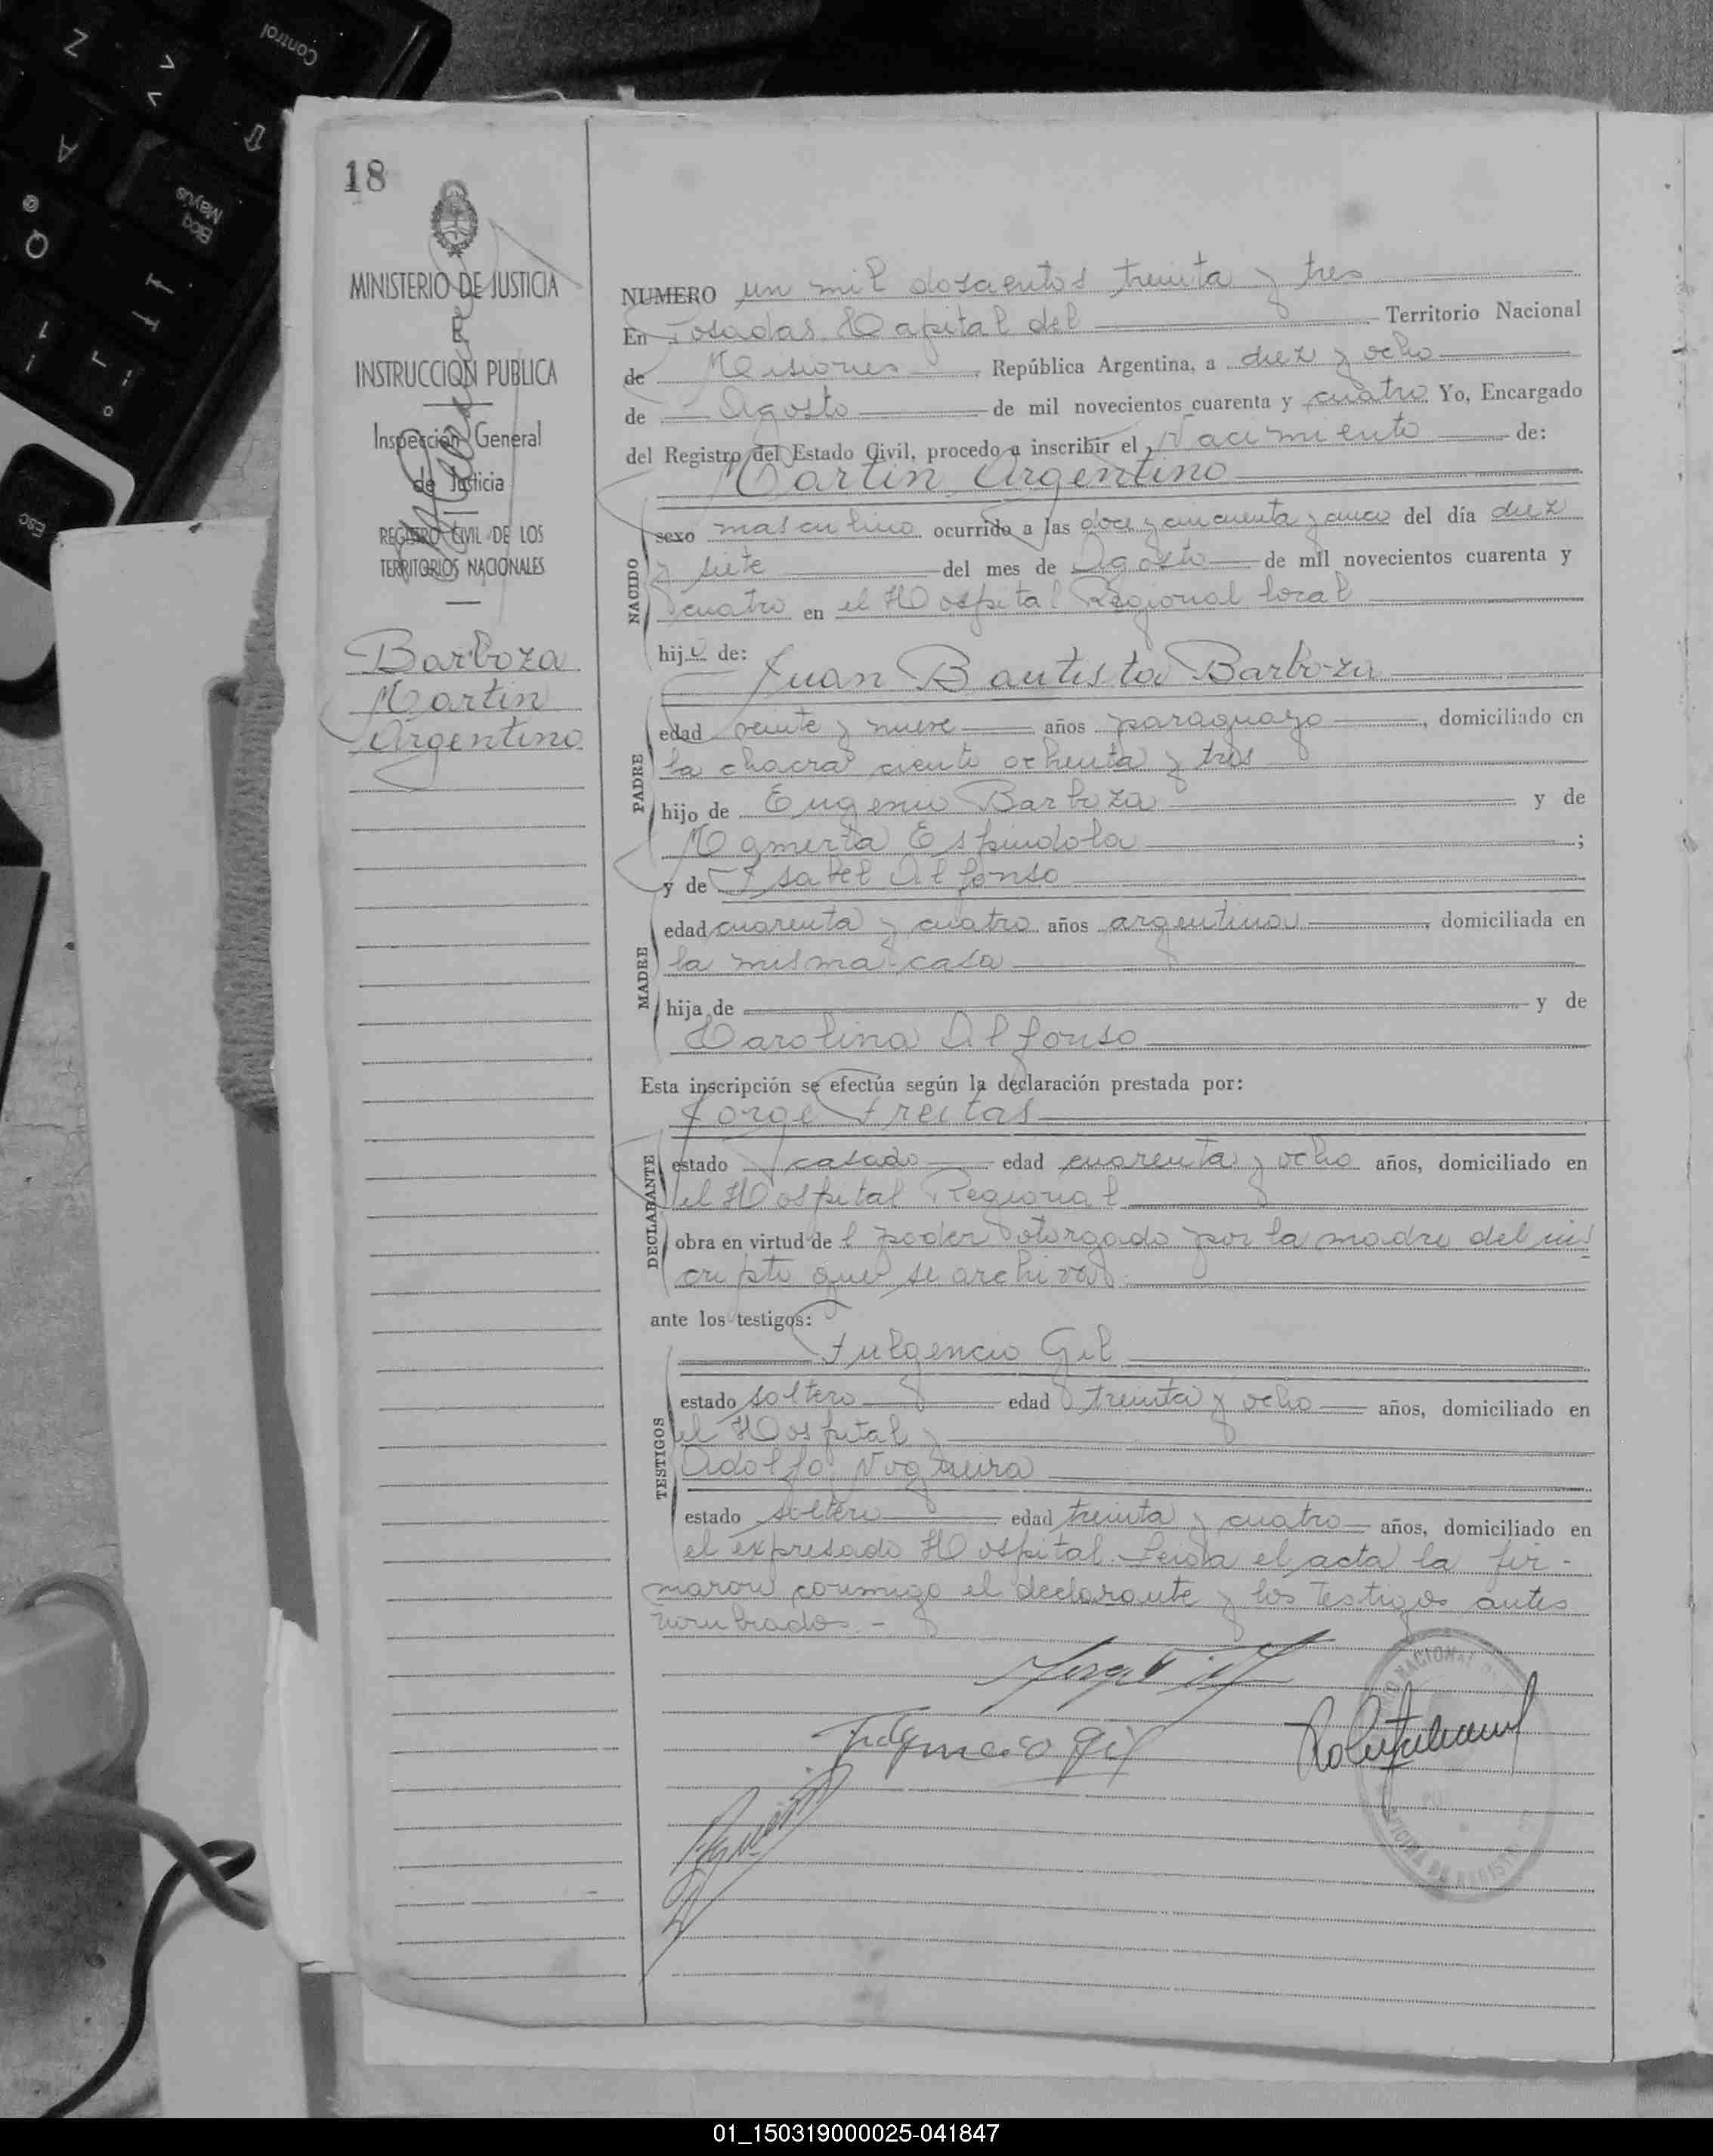 Control
Z
A
Q
@
Bloq
Mayús
ESC
18
MINISTERIO DE JUSTICIA
INSTRUCCION PUBLICA
Inspección General
de Justicia
REGISTRO CIVIL DE LOS
TERRITORIOS NACIONALES
Barboza
Martin
Argentino
NUMERO un mil doscientos treinta y tres
En Posadas Capital del Territorio Nacional
de Misiones, República Argentina, a diez y ocho
de Agosto de mil novecientos cuarenta y cuatro Yo, Encargado
del Registro del Estado Civil, procedo a inscribir el Nacimiento de:
Martin Argentino
NACIDO
sexo masculino ocurrido a las doce y cincuenta y cinco del día diez
y siete del mes de Agosto de mil novecientos cuarenta y
cuatro en el Hospital Regional local
hijo de:
Juan Bautista Barboza
PADRE
edad veinte y nueve años paraguayo, domiciliado en
la chacra ciento ochenta y tres
hijo de Eugenio Barboza y de
Espindola;
y de Isabel Alfonso
MADRE
edad cuarenta y cuatro años argentina, domiciliada en
la misma casa
hija de y de
Carolina Alfonso
Esta inscripción se efectúa según la declaración prestada por:
Jorge Freitas
DECLARANTE
estado casado edad cuarenta y ocho años, domiciliado en
el Hospital Regional
obra en virtud de l poder otorgado por la madre del ins
cripto que se archiva.
ante los testigos:
Fulgencio Gil
TESTIGOS
estado soltero edad treinta y ocho años, domiciliado en
el Hospital y
Adolfo Nogueira
estado soltero edad treinta y cuatro años, domiciliado en
el expresado Hospital. Leida el acta la fir-
maron conmigo el declarante y los testigos antes
nombrados.-
Fulgencio Gil
01_150319000025-041847